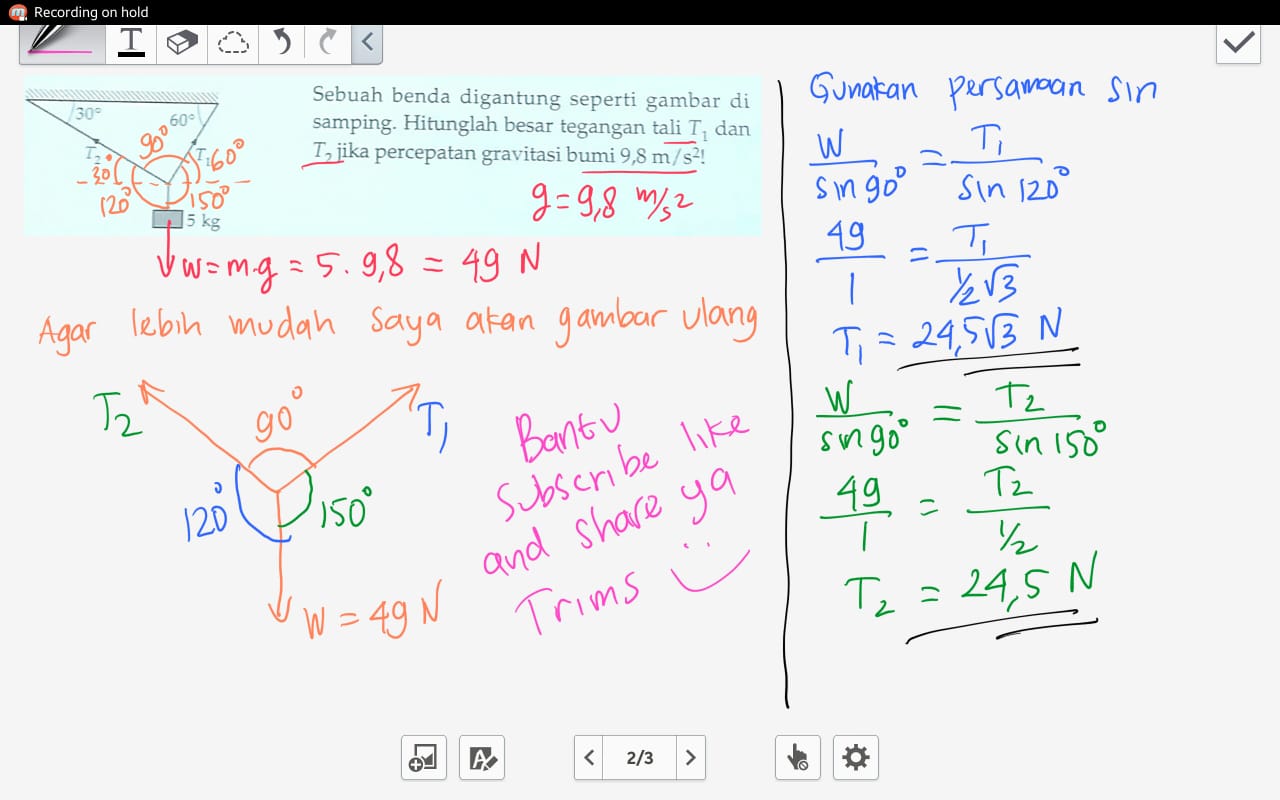 Recording on hold
T
Sebuah benda digantung seperti gambar di
samping. Hitunglah besar tegangan tali T₁ dan
T₂ jika percepatan gravitasi bumi 9,8 m/s²!
g = 9,8 m/s²
30°
60°
90°
T₂
T₁
60°
30
120°
150°
5 kg
W = m.g = 5. 9,8 = 49 N
Agar lebih mudah saya akan gambar ulang
T₂
90°
T₁
120°
150°
W = 49 N
Bantu
subscribe like
and share ya
Trims
Gunakan persamaan sin
W/sin 90° = T₁/sin 120°
49/1 = T₁/½√3
T₁ = 24,5√3 N
W/sin 90° = T₂/sin 150°
49/1 = T₂/½
T₂ = 24,5 N
2/3